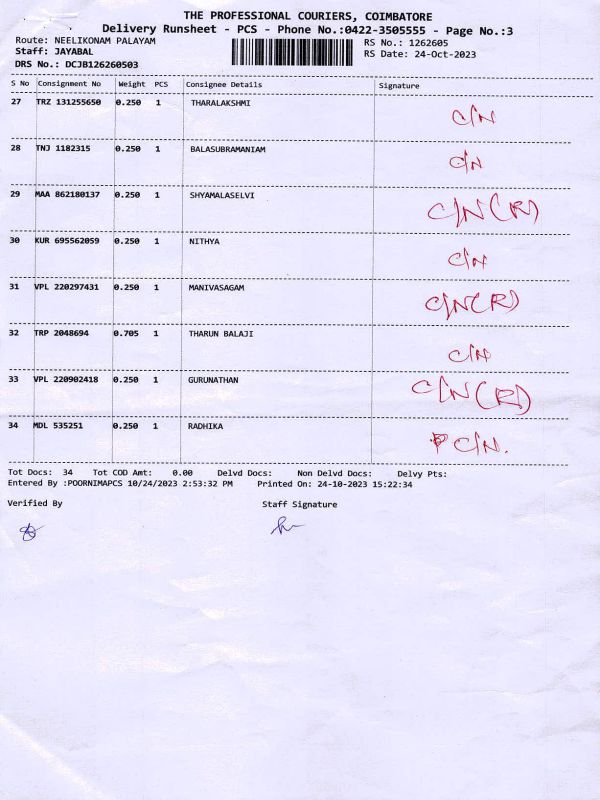 THE PROFESSIONAL COURIERS, COIMBATORE
Delivery Runsheet - PCS - Phone No.:0422-3505555 - Page No.:3
Route: NEELIKONAM PALAYAM
RS No.: 1262605
Staff: JAYABAL
RS Date: 24-Oct-2023
DRS No.: DCJB126260503
S No Consignment No Weight PCS Consignee Details Signature
27 TRZ 131255650 0.250 1 THARALAKSHMI C/N
28 TNJ 1182315 0.250 1 BALASUBRAMANIAM C/N
29 MAA 862180137 0.250 1 SHYAMALASELVI C/N (R)
30 KUR 695562059 0.250 1 NITHYA C/N
31 VPL 220297431 0.250 1 MANIVASAGAM C/N (R)
32 TRP 2048694 0.705 1 THARUN BALAJI C/N
33 VPL 220902418 0.250 1 GURUNATHAN C/N (R)
34 MDL 535251 0.250 1 RADHIKA C/N.
Tot Docs: 34 Tot COD Amt: 0.00 Delvd Docs: Non Delvd Docs: Delvy Pts:
Entered By :POORNIMAPCS 10/24/2023 2:53:32 PM Printed On: 24-10-2023 15:22:34
Verified By Staff Signature